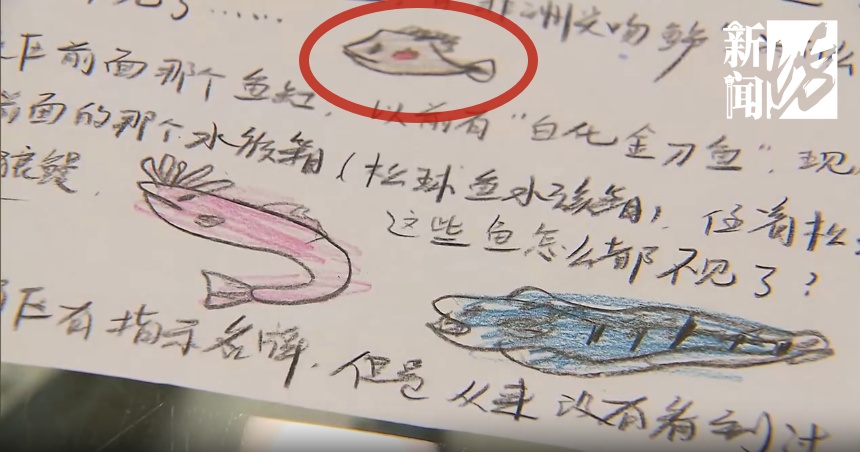 不见了…… 非洲尖吻鲈
新闻坊
区前面那个鱼缸，以前有“白化金刀鱼”，现
前面的那个水族箱（松球鱼水族箱），住着松
狼鳗，这些鱼怎么都不见了？
区有指示名牌，但是从来没有看到过